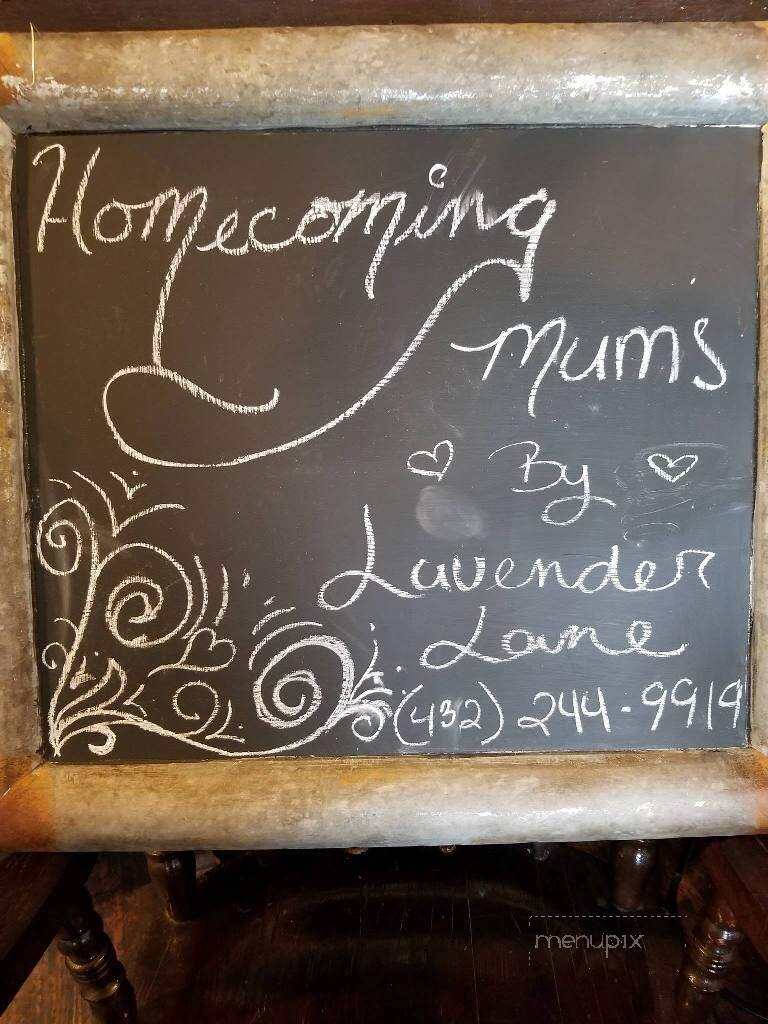 Homecoming
mum's
By
Lavender
Lane
(432) 244-9919
menupix